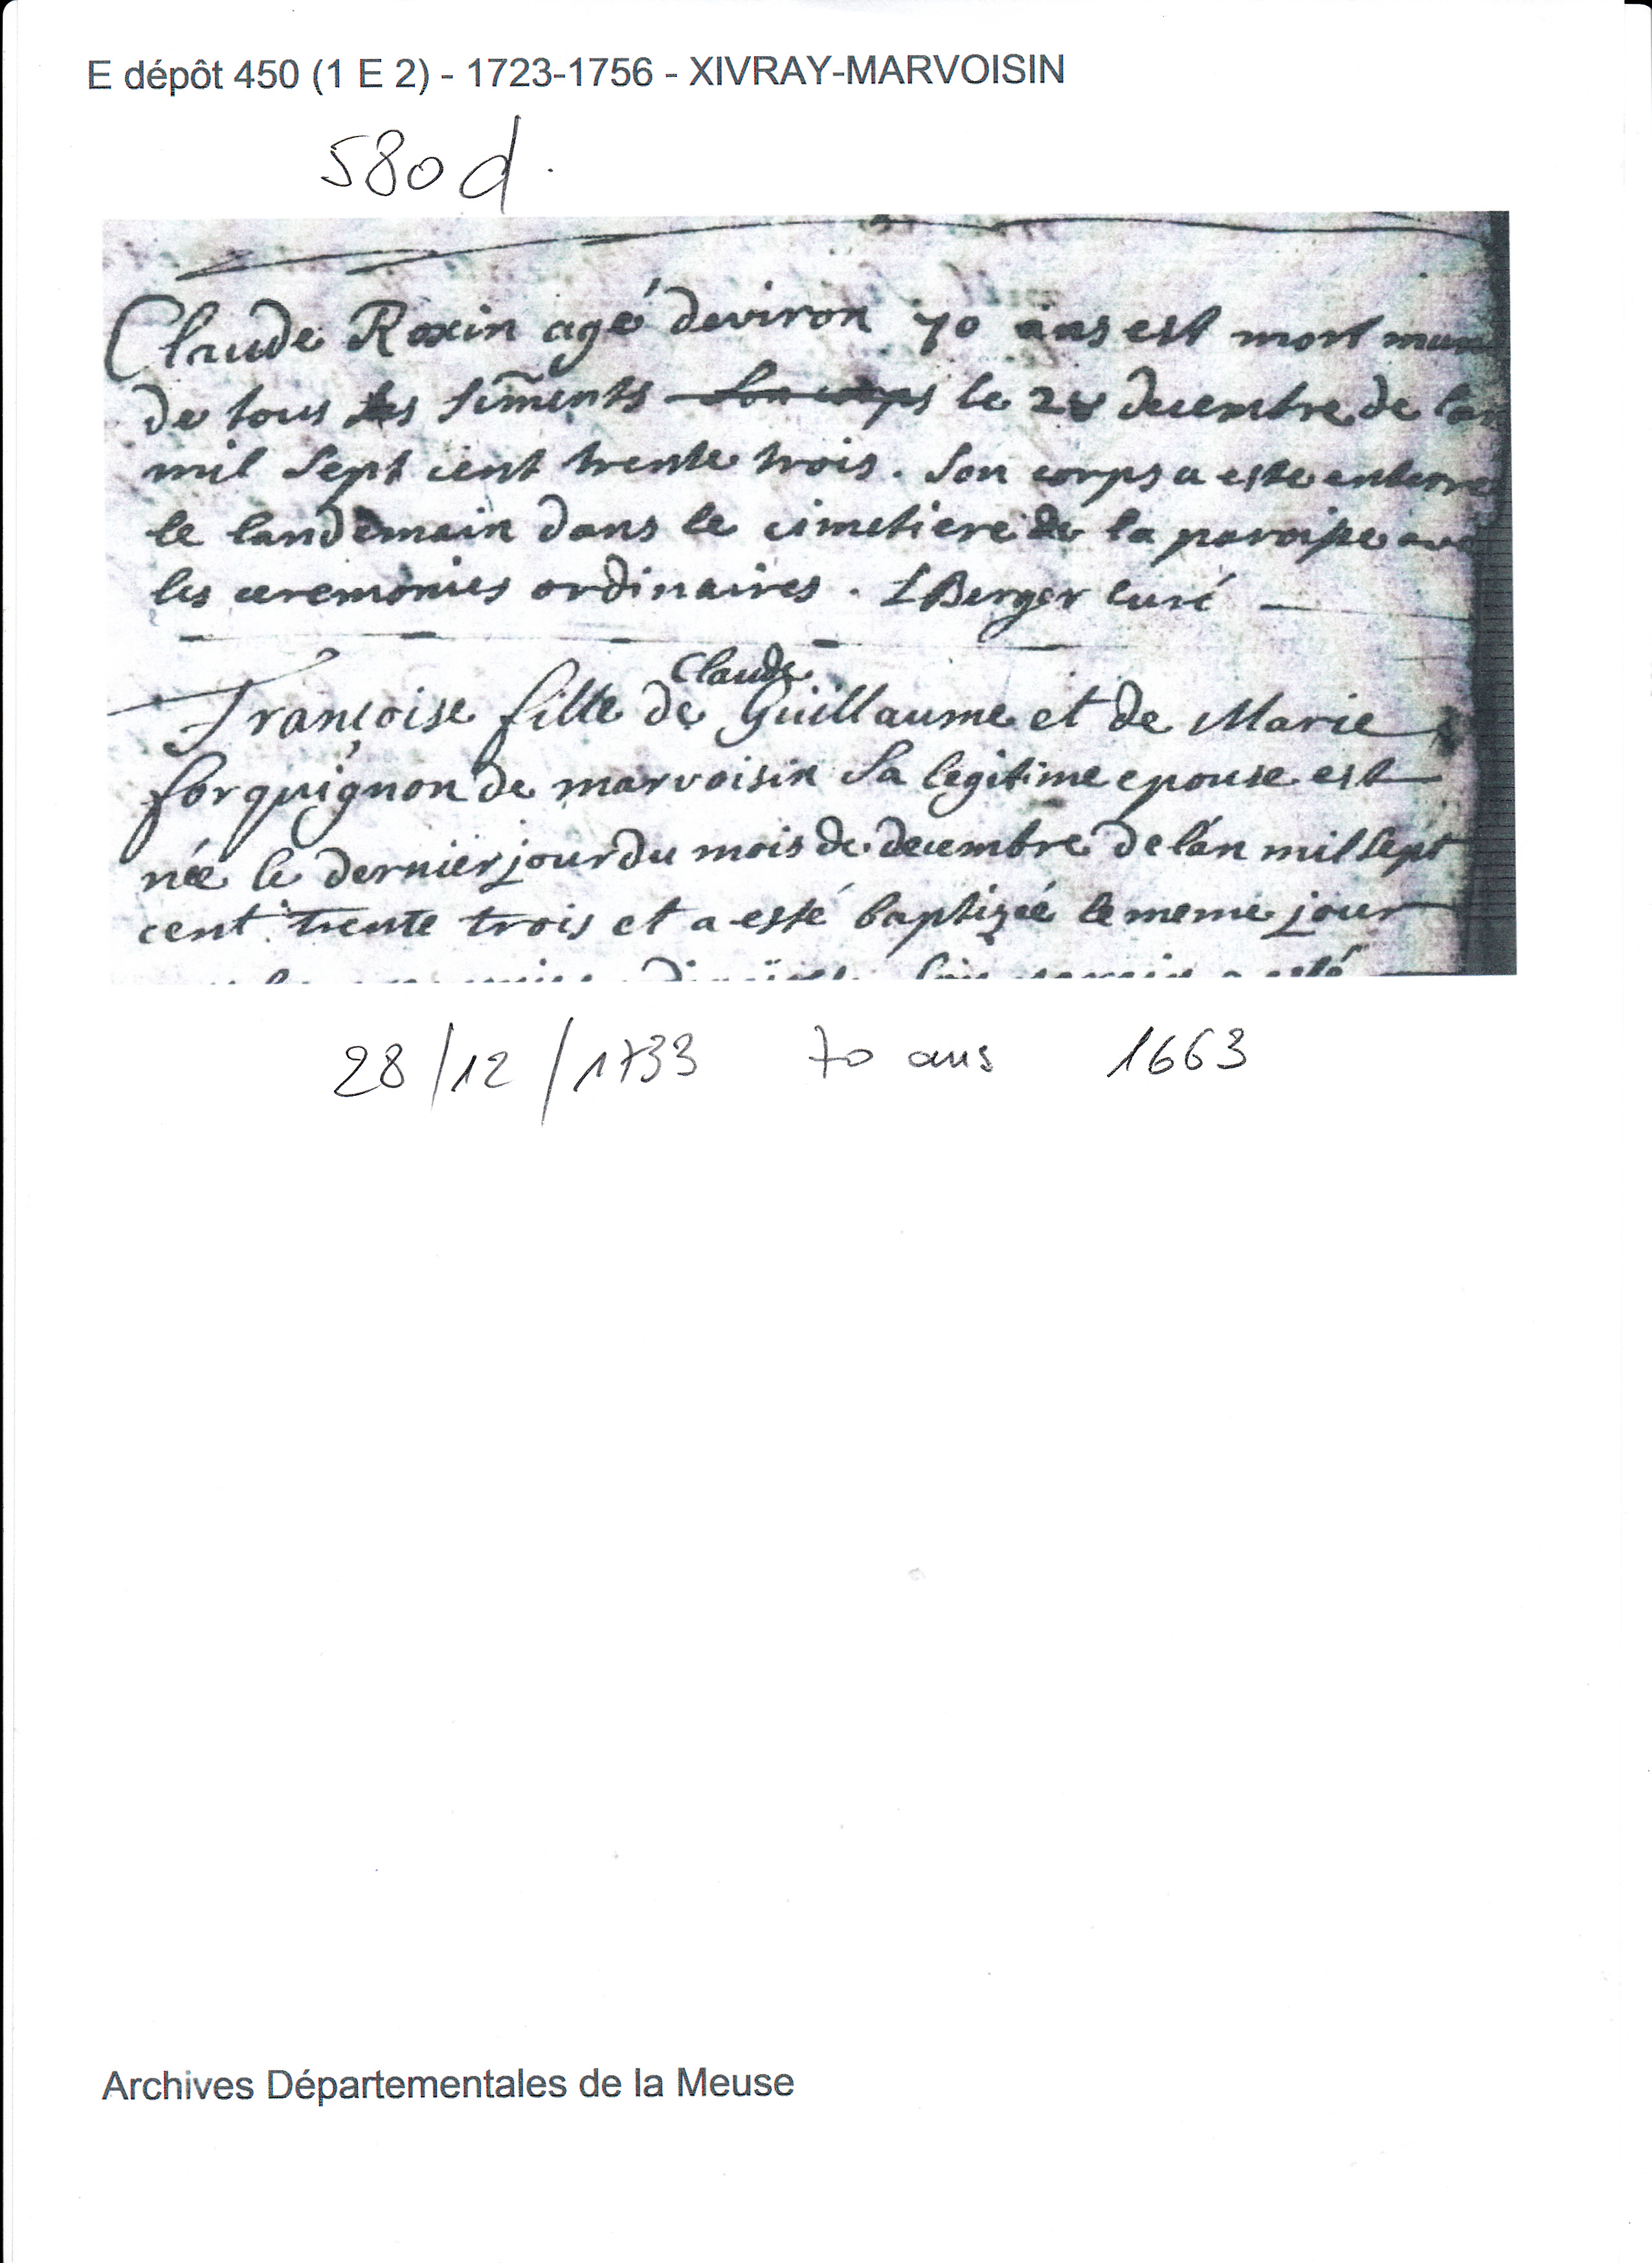 E dépôt 450 (1 E 2) - 1723-1756 - XIVRAY-MARVOISIN
580 d.
Claude Roxin agé deviron 70 ans est mort muni
de tous les Sments Son corps le 28 decembre de lan
mil Sept cent trente trois. Son corps a este enterré
le landemain dans le cimetiere de la paroisse avec
les ceremonies ordinaires. L Berger Curé
Claude
Françoise fille de Guillaume et de Marie
forquignon de marvoisin Sa legitime epouse est
née le dernier jour du mois de decembre de lán mil Sept
cent trente trois et a esté baptizée le meme jour
28/12/1733 70 ans 1663
Archives Départementales de la Meuse